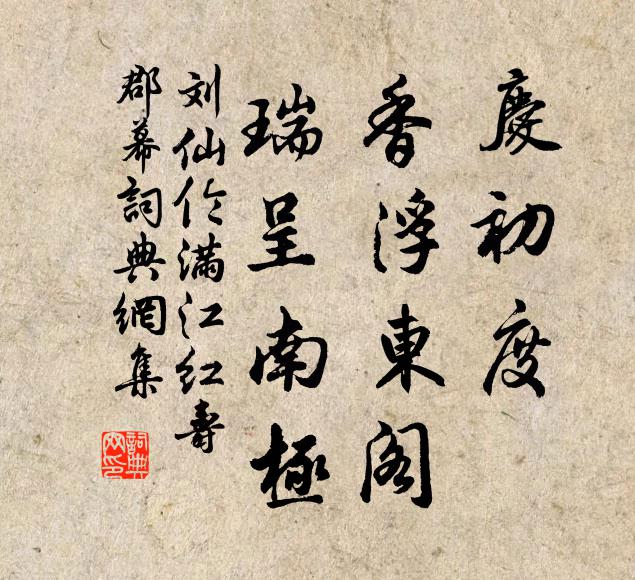 慶初度
香浮東阁
瑞呈南極
刘仙伦满江红壽
郡幕詞典網集
詞典网印